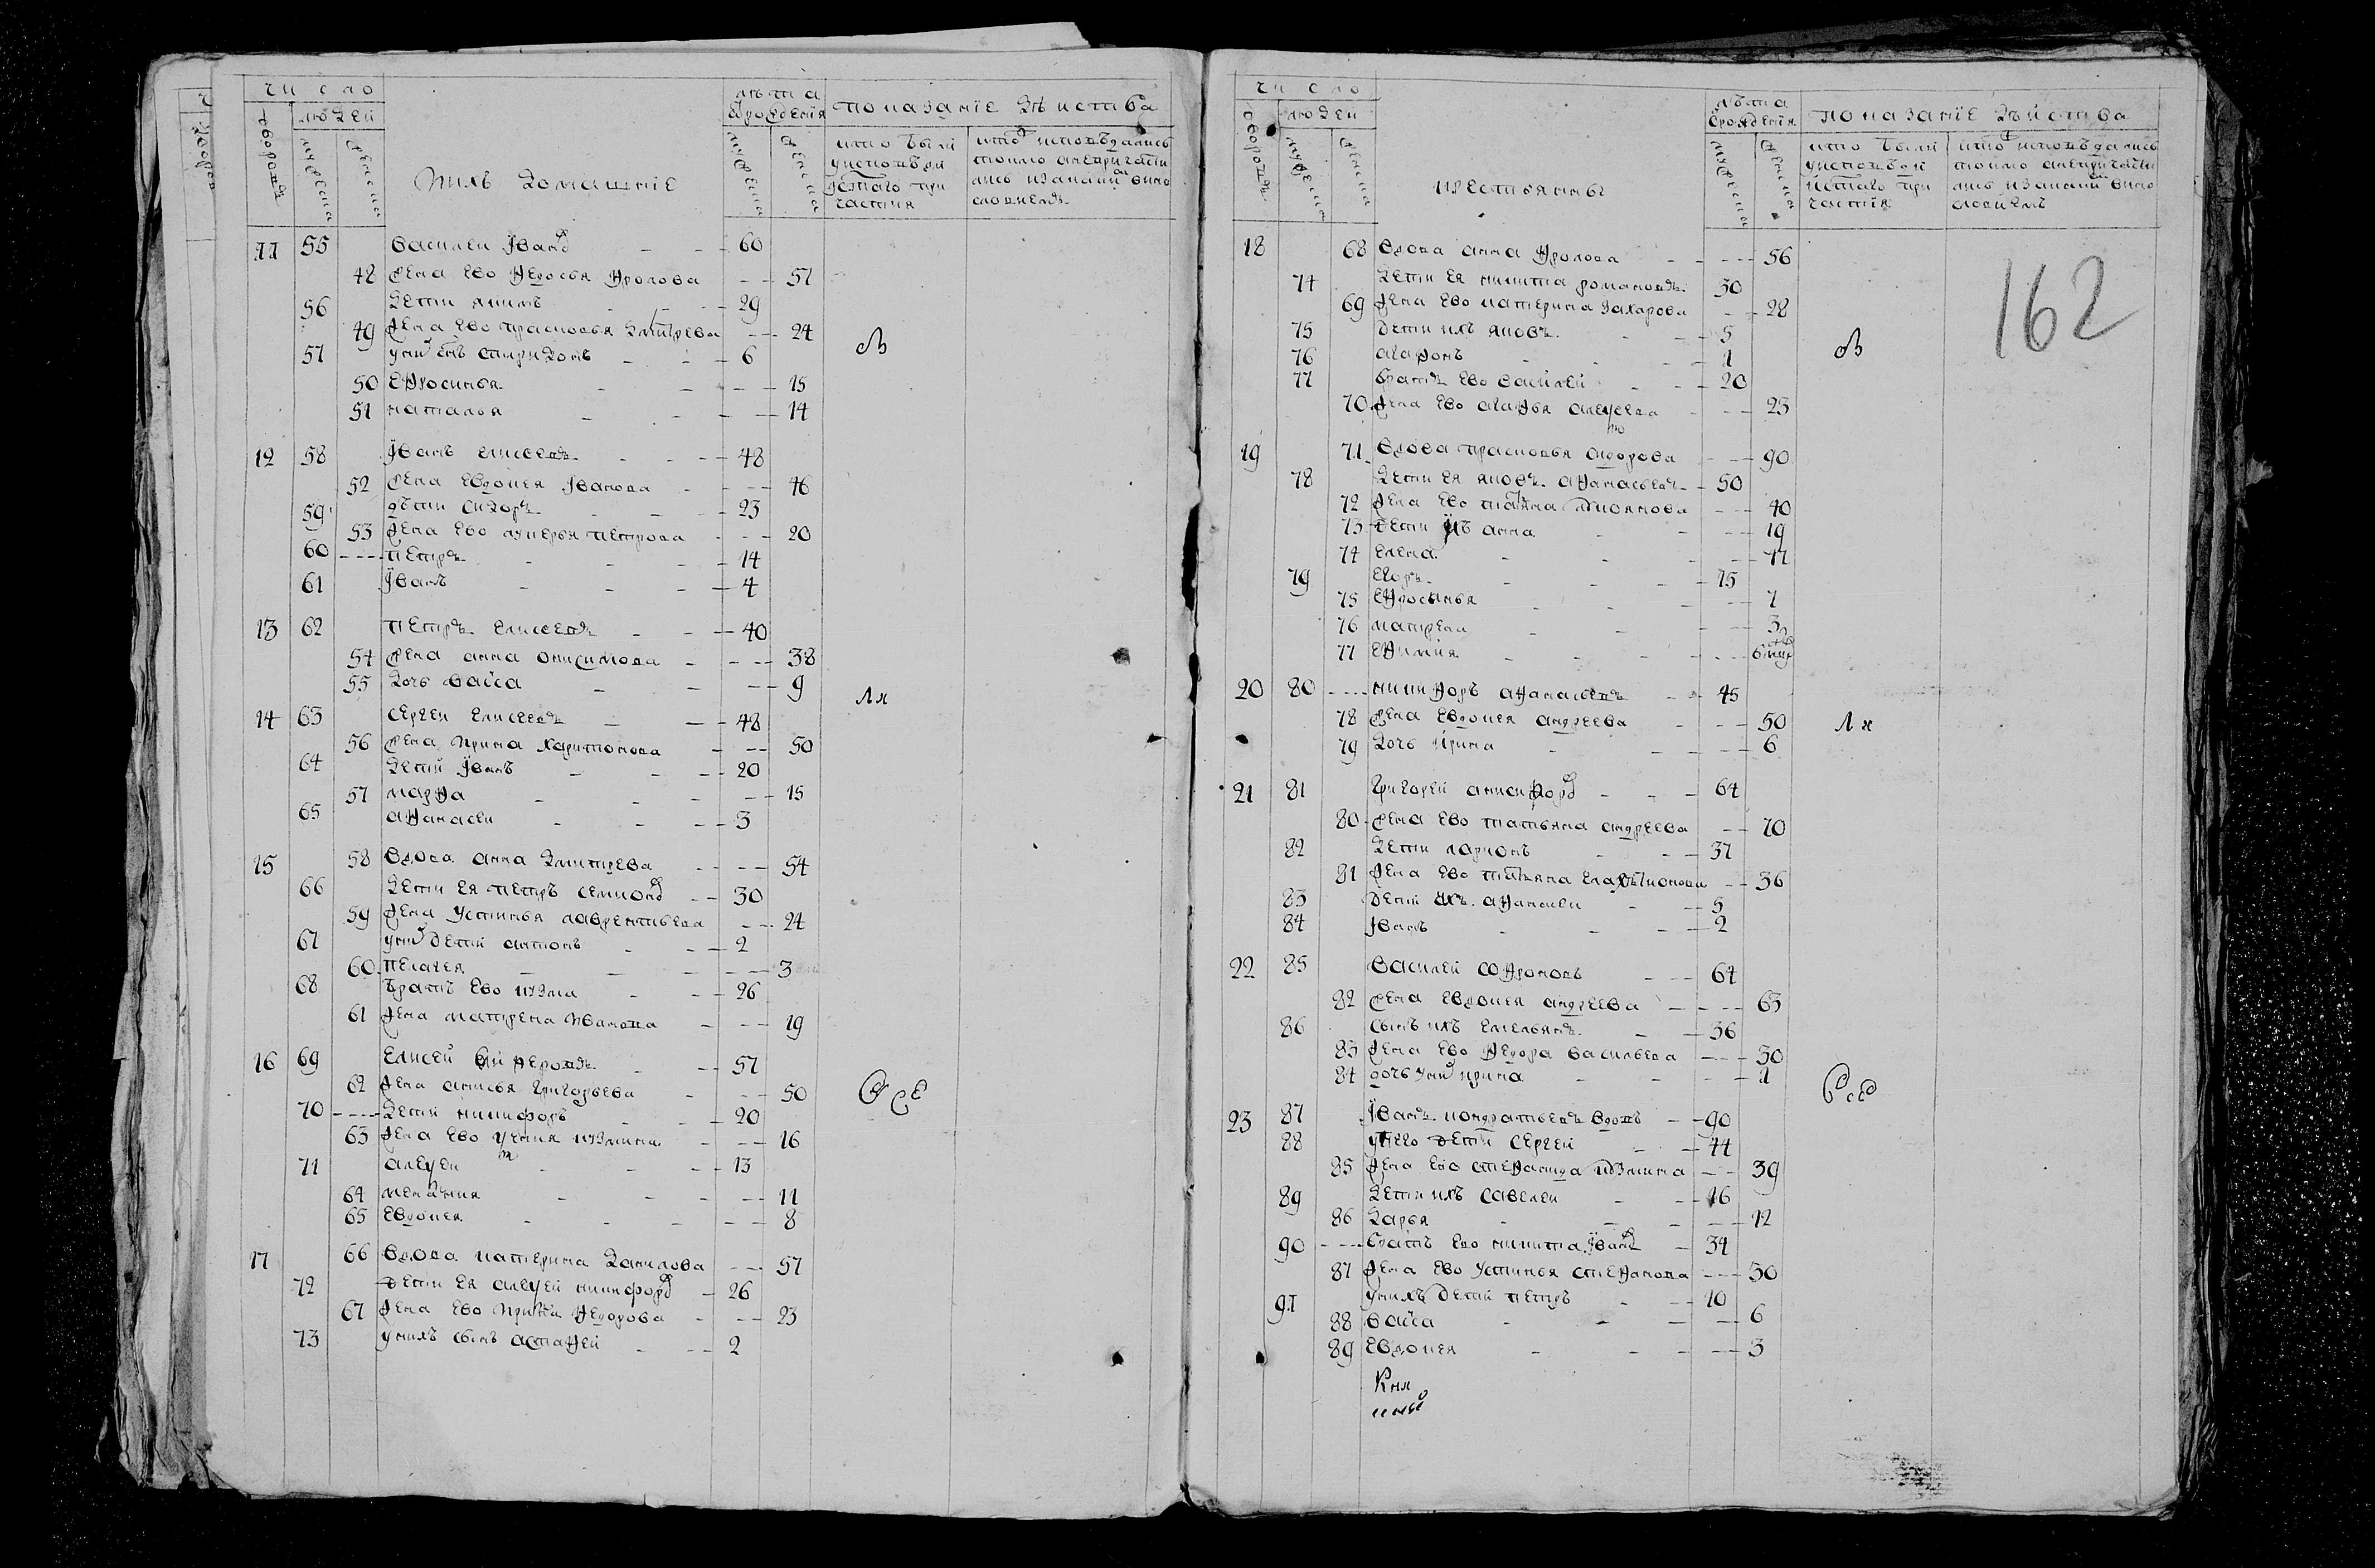 число
людей
дворовъ
мужеска
женска
Ихъ домашние
лѣта
ѿрождения
мужеска
женска
показание дѣиства
кто были
уисповѣди
истаго при
частия
кто исповѣдались
токмо анепричасти
лись изакаким вино
словиемъ
11 55 василеи Иванов 60
48 жена ево федосья фролова 51
56 дети яким 29
49 жена ево прасковья Дмитрева 24
57 уних сынъ спиридонъ 6
50 ефросинья 15
51 наталья 14
12 58 Иванъ елисеевъ 48
52 жена евдокея Иванова 46
59 дѣти сидоръ 23
53 жена ево лукерья петрова 20
60 петръ 14
61 Иванъ 4
13 62 петръ елисеевъ 40
54 жена анна онисимова 38
55 дочь васса 9
14 63 сергеи елисеевъ 48
56 жена ирина харитонова 50
64 дети Иванъ 20
57 марфа 15
65 афанасеи 3
15 58 вдова анна дмитрева 54
66 дети ея петръ семионов 30
59 жена устинья лаврентьева 24
67 уних дети антонъ 2
60 пелагея 3
68 братъ ево кузма 26
61 жена матрена иванова 19
16 69 елисей 57
62 жена анисья григорьева 50
70 дети никифоръ 20
63 жена ево кузмина 16
71 алексеи 13
64 меланья 11
65 евдокея 8
17 66 вдова катерина данилова 57
72 дети ея алексей никифоров 26
67 жена ево ирина федорова 23
73 унихъ сынъ астафей 2
в
ся
все
число
людей
дворовъ
мужеска
женска
крестьянъ
лѣта
ѿрождения
мужеска
женска
показание дѣиства
кто были
уисповѣди
истаго при
частия
кто исповѣдались
токмо анепричасти
лись изакаким вино
словиемъ
162
18 68 вдова анна фролова 56
74 дети ея никита романовъ 30
69 жена ево катерина захарова 28
75 дети ихъ яковъ 5
76 агафонъ 1
77 братъ ево василей 20
70 жена ево агафья алексеева 23
19 71 вдова прасковья сидорова 90
78 дети ея яковъ афанасьевъ 50
72 жена ево татьяна 40
73 дети ихъ анна 19
74 елена 11
79 егоръ 15
75 ефросинья 7
76 матрена 3
77 ефимия 6
20 80 никифоръ афанасьевъ 45
78 жена евдокея андреева 50
79 дочь ирина 6
21 81 григорей анисифоров 64
80 жена ево татьяна андреева 70
82 дети ларионъ 37
81 жена ево татьяна 36
83 дети ихъ афанасеи 5
84 Иванъ 2
22 85 василей софроновъ 64
82 жена евдокея андреева 63
86 сынъ ихъ емельянъ 36
83 жена ево федора васильева 30
84 дочь уних ирина 1
23 87 Иванъ кондратьевъ вдовъ 90
88 унего дети сергей 44
85 жена ево стефанида кузмина 39
89 дети ихъ савелеи 16
86 дарья 12
90 братъ ево никита Иванов 34
87 жена ево устинья стефанова 30
91 унихъ дети петръ 10
88 васса 6
89 евдокея 3
в
ся
все
Кня